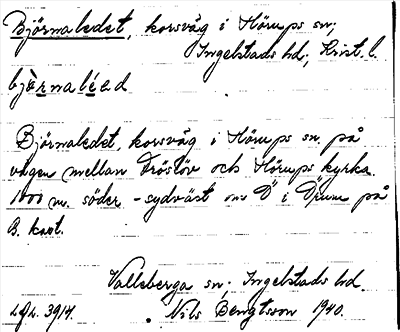 Björnaledet, korsväg i Hörups sn;
Ingelstads hd, Krist. l.
bjò̱rnaléed
Björnaledet, korsväg i Hörups sn. på
vägen mellan Fröslöv och Hörups kyrka.
1000 m. söder - sydväst om D i Örum på
B. kart.
Valleberga sn; Ingelstads hd
Nils Bengtsson 1940.
3914.